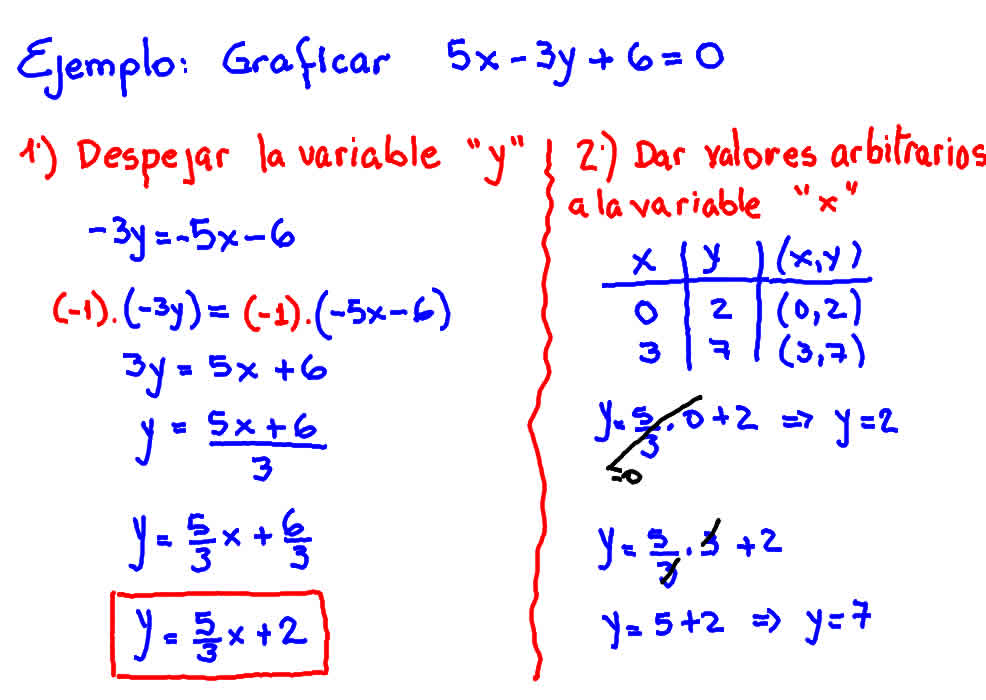 Ejemplo: Graficar 5x - 3y + 6 = 0
1°) Despejar la variable "y"
-3y = -5x - 6
(-1).(-3y) = (-1).(-5x - 6)
3y = 5x + 6
y = (5x + 6)/3
y = 5/3 x + 6/3
y = 5/3 x + 2
2°) Dar valores arbitrarios
a la variable "x"
x | y | (x,y)
0 | 2 | (0,2)
3 | 7 | (3,7)
y = 5/3 . 0 + 2 => y = 2
=0
y = 5/3 . 3 + 2
y = 5 + 2 => y = 7